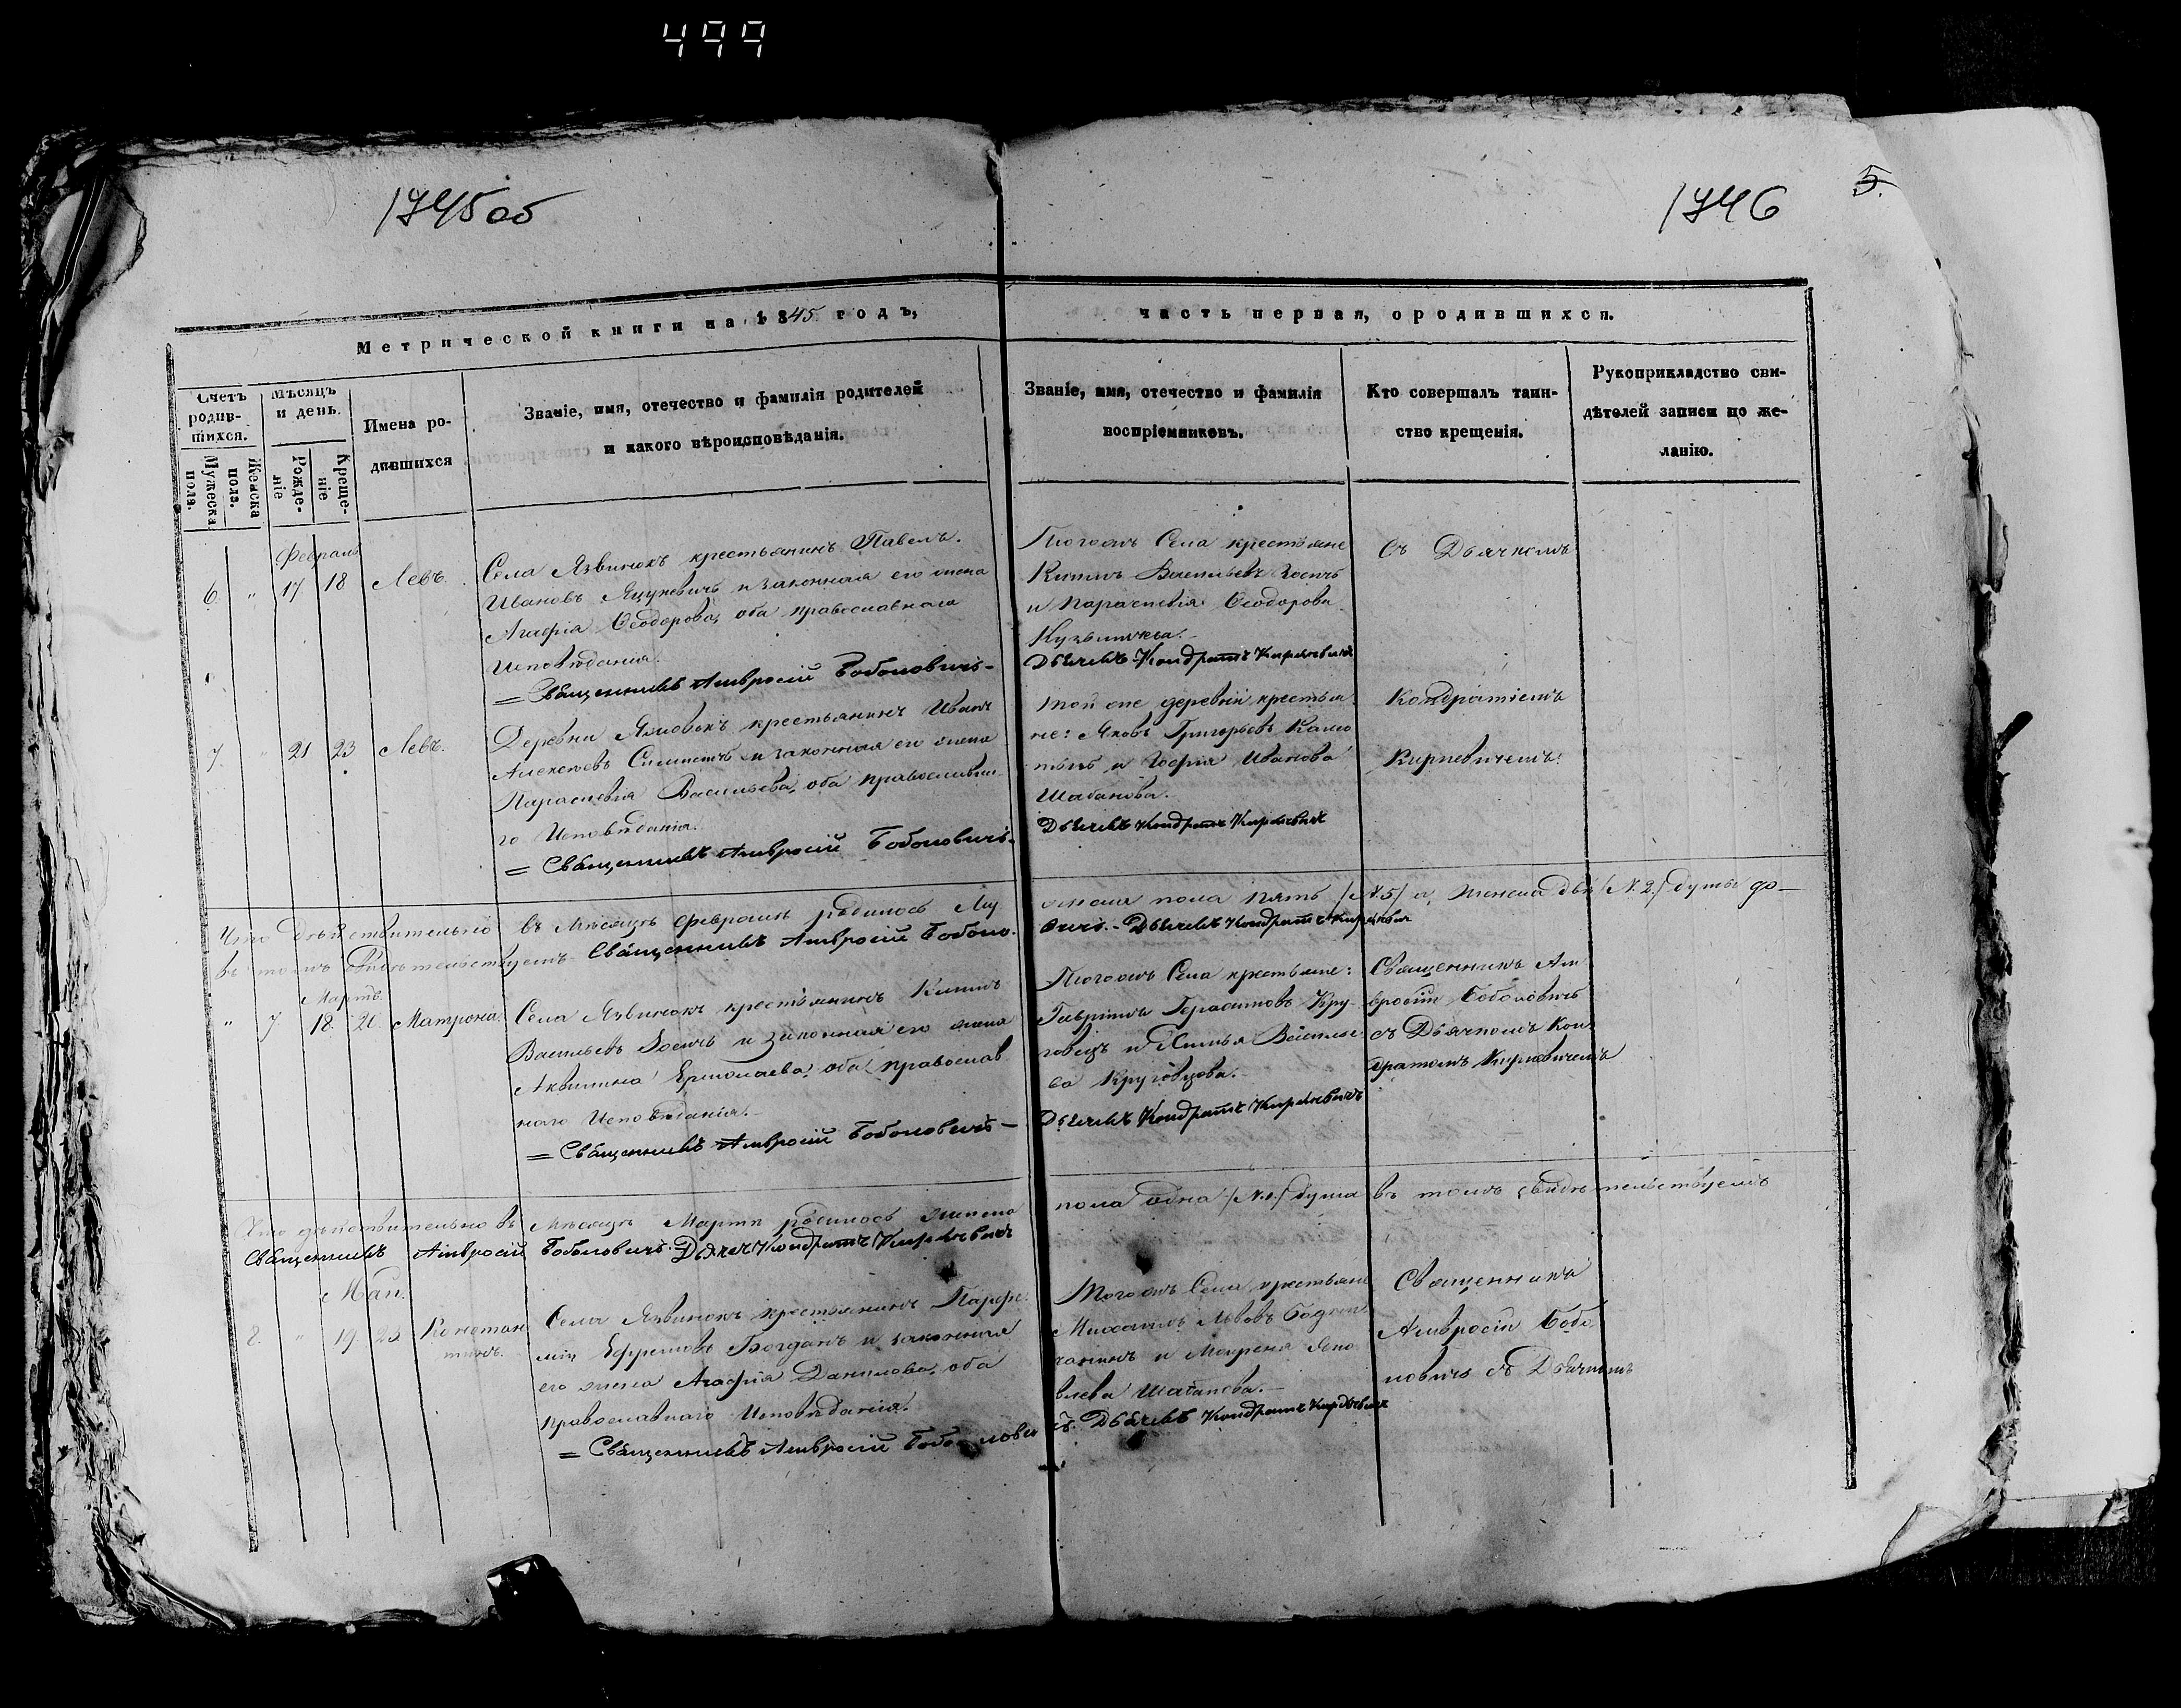 499
1745об
1746
5.
Метрической книги на 1845 годъ,
часть первая, ородившихся.
Счетъ родив-шихся.
Мужеска пола.
Женска пола.
Мѣсяцъ и день.
Рожде-ніе
Креще-ніе
Имена ро-
дившихся
Званіе, имя, отечество и фамилія родителей
и какого вѣроисповѣданія.
Званіе, имя, отечество и фамилія
воспріемниковъ.
Кто совершалъ таин-
ство крещенія.
Рукоприкладство сви-
дѣтелей записи по же-
ланію.
Февраль
6. " 17 18 Левъ.
Села Язвинокъ крестьянинъ Павелъ
Ивановъ Яцукевичъ и законная его жена
Агафія Ѳеодорова, оба православнаго
Исповѣданія.
= Священникъ Амвросій Боболовичъ -
Тогожъ Села крестьяне
Васильевъ
и Параскевія Ѳеодорова
Дьячекъ Кондратъ
Съ Дьячкомъ
7. " 21 23 Левъ.
Деревни крестьянинъ Иванъ
Алексѣевъ и законная его жена
Параскевія Васильева, оба православна-
го Исповѣданія.
= Священникъ Амвросій Боболовичъ -
Той же деревни крестья-
не: Яковъ Григорьевъ
и Софія Иванова
Шабанова.
Дьячекъ Кондратъ
Кондратіемъ
Что дѣйствительно въ Мѣсяцѣ Февралѣ родилось Му
жеска пола пять /N.5/ и, Женска двѣ /N.2./ душы до-
въ томъ свидѣтельствуемъ Священникъ Амвросій Боболо-
вичъ. - Дьячекъ Кондратъ
Мартъ.
" 7 18. 21. Матрона.
Села Язвинокъ крестьянинъ
Васильевъ и законная его жена
Акилина Ермолаева, оба православ
наго Исповѣданія.
= Священникъ Амвросій Боболовичъ -
Тогожъ Села крестьяне:
Гавріилъ Герасимовъ Кру-
говецъ и Васильe
ва Круговцова.
Дьячекъ Кондратъ
Священникъ Ам
вросій Боболовичъ
съ Дьячкомъ Кон
дратомъ
Что дѣйствительно въ Мѣсяцѣ Мартѣ родилось женска
пола одна /N.1./ душа въ томъ свидѣтельствуемъ
Священникъ Амвросій Боболовичъ. Дьячекъ Кондратъ
Май.
8. " 19. 23 Констан
тинъ.
Села Язвинокъ крестьянинъ Парфе
ній Ефремовъ Богданъ и законная
его жена Агафія Данилова, оба
православнаго Исповѣданія.
= Священникъ Амвросій Боболови
чъ. Дьячекъ Кондратъ
Тогожъ Села крестьяне
Михаилъ Львовъ
и
Шабанова.
Священникъ
Амвросій Бобо
ловичъ съ Дьячкомъ